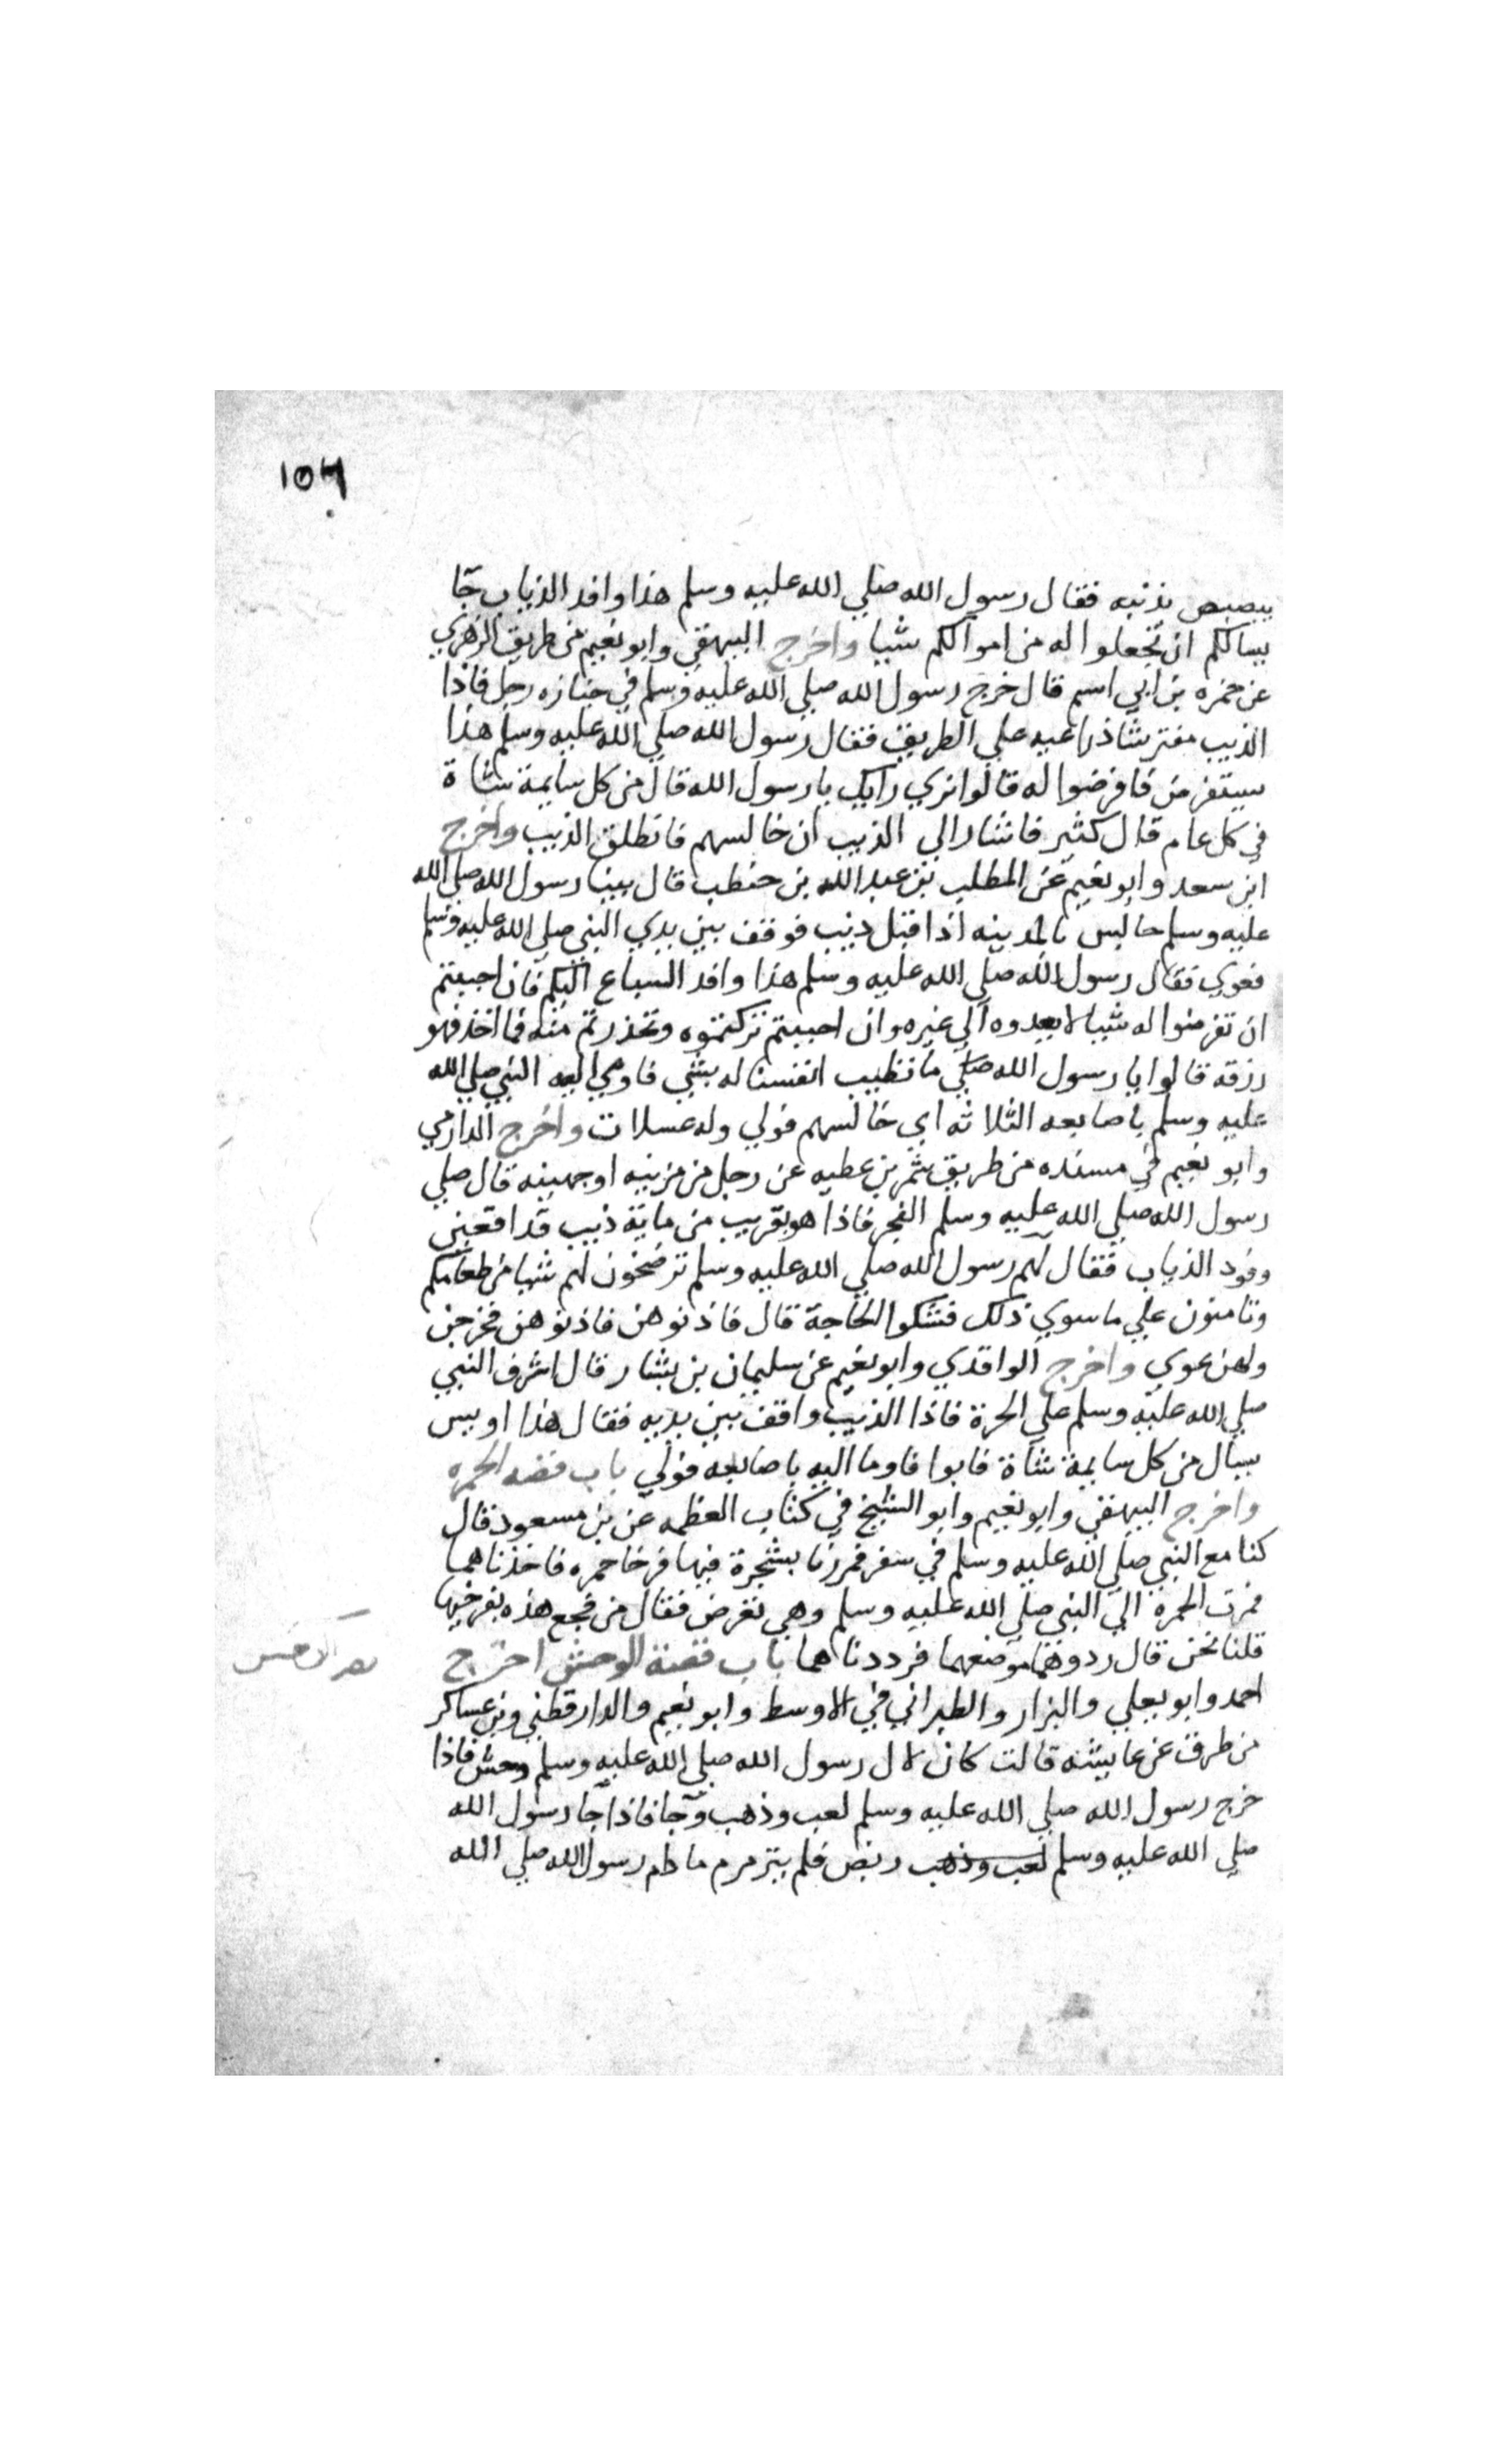 ١٥٦
يبصبص بذنبه فقال رسول الله صلي الله عليه وسلم هذا وافد الذياب جآ
يسالكم ان تجعلوا له من اموالكم شيا واخرج البيهقي وابو نعيم من طريق الزهري
عن حمزه بن ابي اسيد قال خرج رسول الله صلي الله عليه وسلم في جنازه رجل فاذا
الذيب مفترشا ذراعيه علي الطريق فقال رسول الله صلي الله عليه وسلم هذا
يستفرض فافرضوا له قالوا نري رايك يا رسول الله قال من كل سايمة شاة
في كل عام قال كثير فاشار الي الذيب ان خالسهم فانطلق الذيب واخرج
ابن سعد وابو نعيم عن المطلب بن عبد الله بن حنطب قال بينا رسول الله صلي الله
عليه وسلم جالس بالمدينه اذ اقبل ذيب فوقف بين يدي النبي صلي الله عليه وسلم
فعوي فقال رسول الله صلي الله عليه وسلم هذا وافد السباع اليكم فان احببتم
ان تفرضوا له شيا لا يعدوه الي غيره وان احببتم تركتموه وتحذرتم منه فما اخذ فهو
رزقه قالوا يا رسول الله صلي ما تطيب انفسنا له بشي فاومي اليه النبي صلي الله
عليه وسلم باصابعه الثلاثه اي خالسهم فولي وله عسلات واخرج الدارمي
وابو نعيم في مسنده من طريق شمر بن عطيه عن رجل من مزينه او جهينه قال صلي
رسول الله صلي الله عليه وسلم الفجر فاذا هو بقريب من ماية ذيب قد اقعين
وفود الذياب فقال لهم رسول الله صلي الله عليه وسلم ترضخون لهم شيا من طعامكم
وتامنون علي ما سوي ذلك فشكوا الحاجة قال فاذنوهن فاذنوهن فخرجن
ولهن عوي واخرج الواقدي وابو نعيم عن سليمان بن يشار قال اشرف النبي
صلي الله عليه وسلم علي الحرة فاذا الذيب واقف بين يديه فقال هذا اويس
يسال من كل سايمة شاة فابوا فاوما اليه باصابعه فولي باب قصه الحمره
واخرج البيهقي وابو نعيم وابو الشيخ في كتاب العظمه عن بن مسعود قال
كنا مع النبي صلي الله عليه وسلم في سفر فمررنا بشجرة فيها فرخا حمره فاخذناهما
فمرت الحمرة الي النبي صلي الله عليه وسلم وهي تعرض فقال من فجع هذه بفرخيها
قلنا نحن قال ردوهما موضعهما فرددناهما باب قصة الوحش اخرج
احمد وابو يعلي والبزار والطبراني في الاوسط وابو نعيم والدارقطني وبن عساكر
من طرق عن عايشه قالت كان لال رسول الله صلي الله عليه وسلم وحش فاذا
خرج رسول الله صلي الله عليه وسلم لعب وذهب وجآ فاذا جآ رسول الله
صلي الله عليه وسلم لعب وذهب ربض فلم يترمرم ما دام رسول الله صلي الله